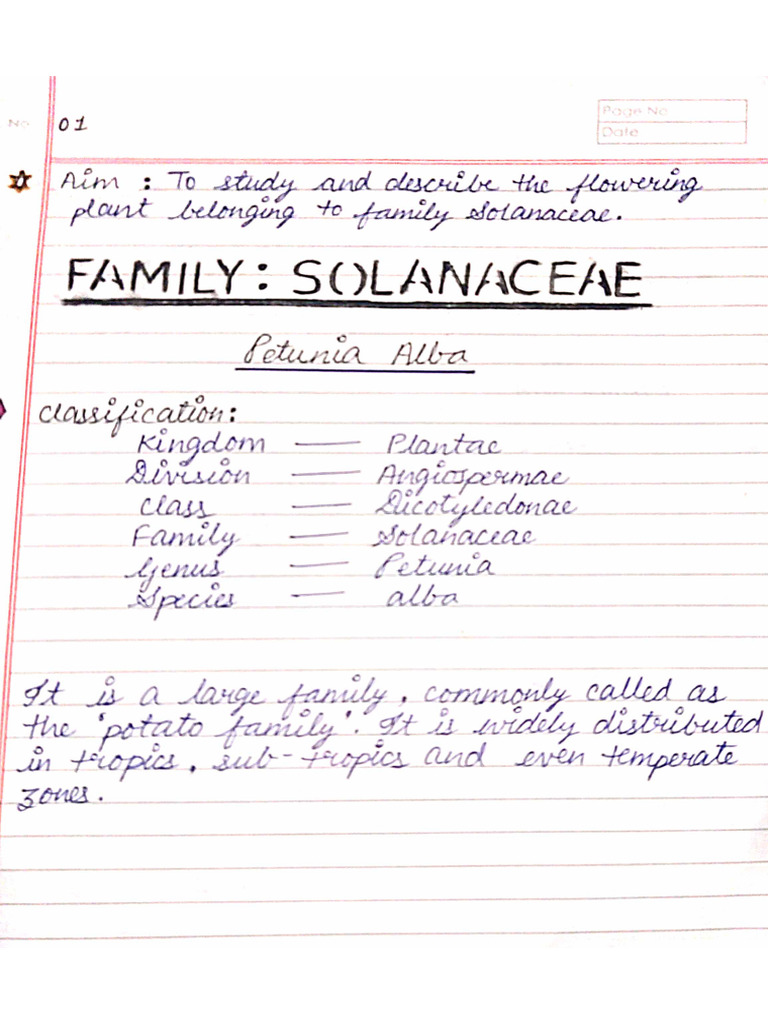 No.
01
Page No.
Date
Aim : To study and describe the flowering
plant belonging to family Solanaceae.
FAMILY: SOLANACEAE
Petunia Alba
Classification:
Kingdom — Plantae
Division — Angiospermae
Class — Dicotyledonae
Family — Solanaceae
Genus — Petunia
Species — alba
It is a large family, commonly called as
the 'potato family'. It is widely distributed
in tropics, sub-tropics and even temperate
zones.